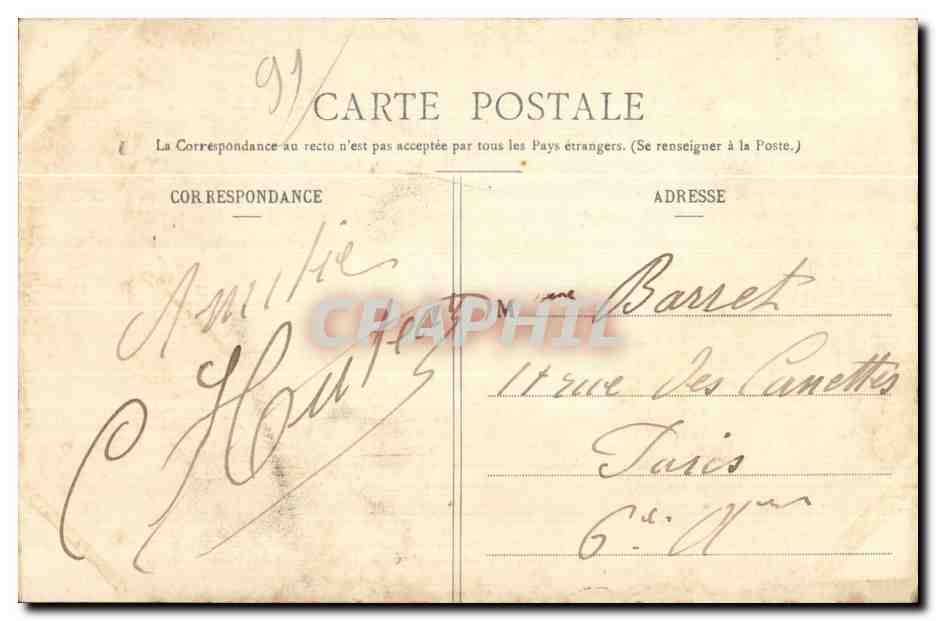 91/
CARTE POSTALE
La Correspondance au recto n'est pas acceptée par tous les Pays étrangers. (Se renseigner à la Poste.)
CORRESPONDANCE
Amitié
C
ADRESSE
Mme Barret
rue des Canettes
Paris
6e
CPAPHIL